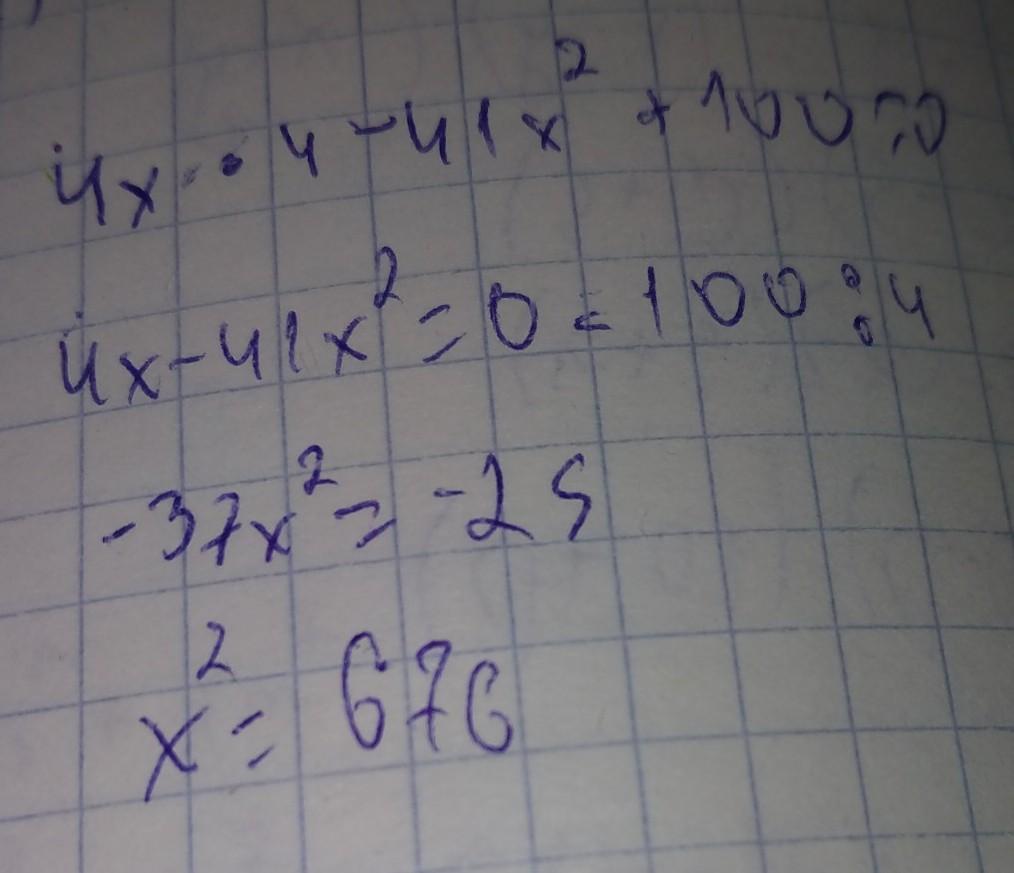 4x · 4 - 41x² + 100 = 0
4x - 41x² = 0 - 100 : 4
-37x² = -25
x² = 676